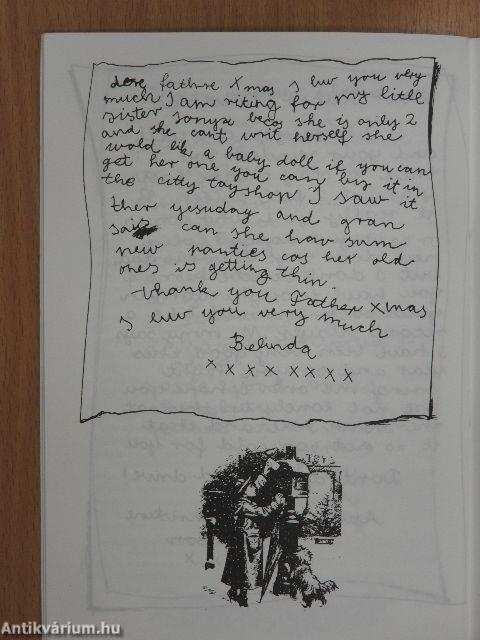 dere fathre Xmas I luv you very
much I am riting for my litle
sister sonya becos she is only 2
and she cant writ herself she
wold lik a baby doll if you can
get her one you can biy it in
the citty toyshop I saw it
ther yesuday and gran
said can she hav sum
new panties cos her old
ones is getting thin.
thank you Father Xmas
I luv you very much
Belinda
x x x x x x x x
Antikvárium.hu